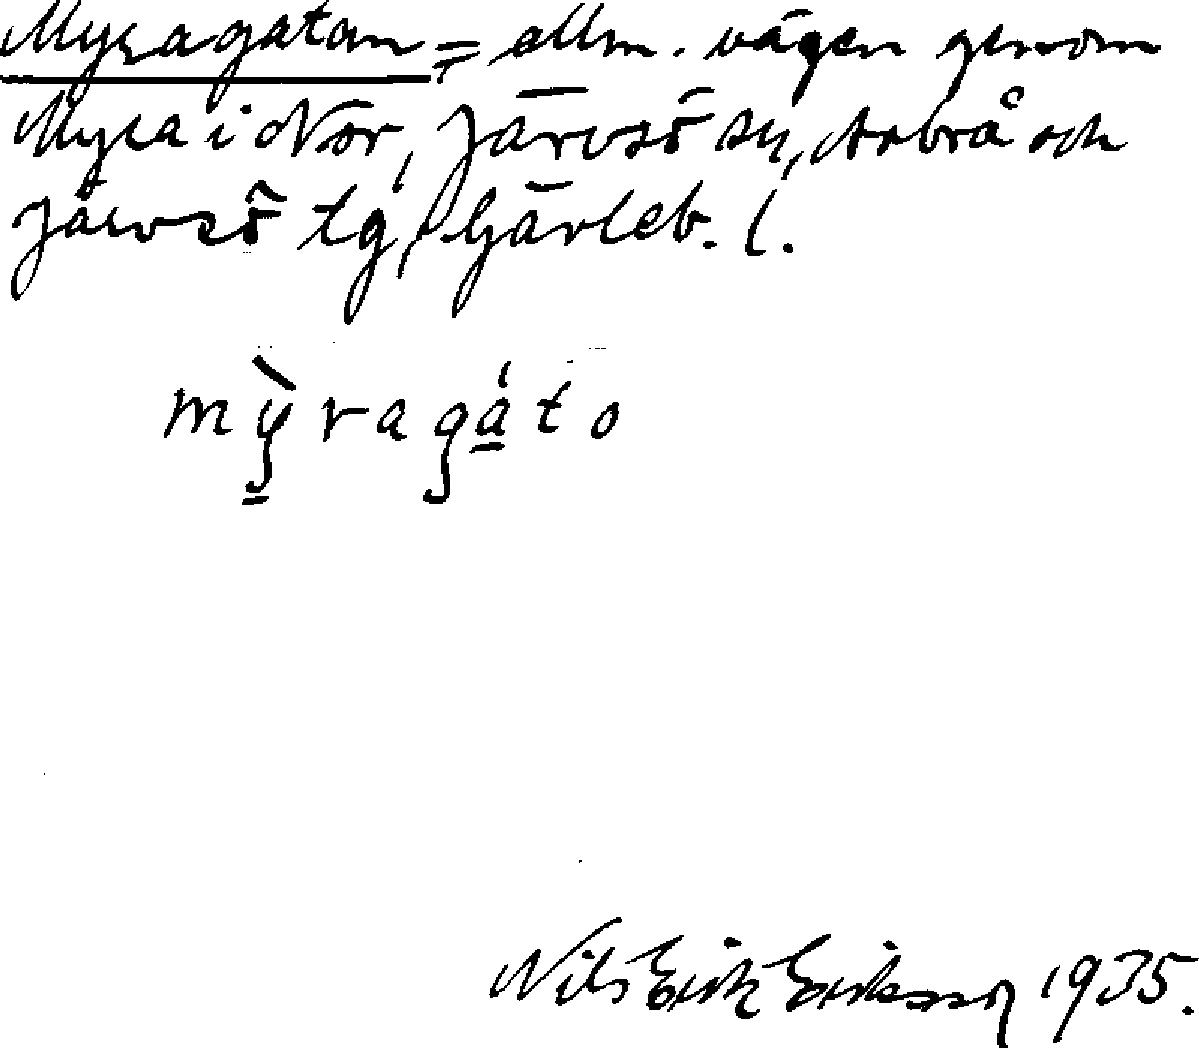 Myragatan = allm. vägen genom
Myra i Nor, Järvsö sn, Arbrå och
Järvsö tg, Gävleb. l.
mỳragáto
Nils Erik Eriksson 1935.